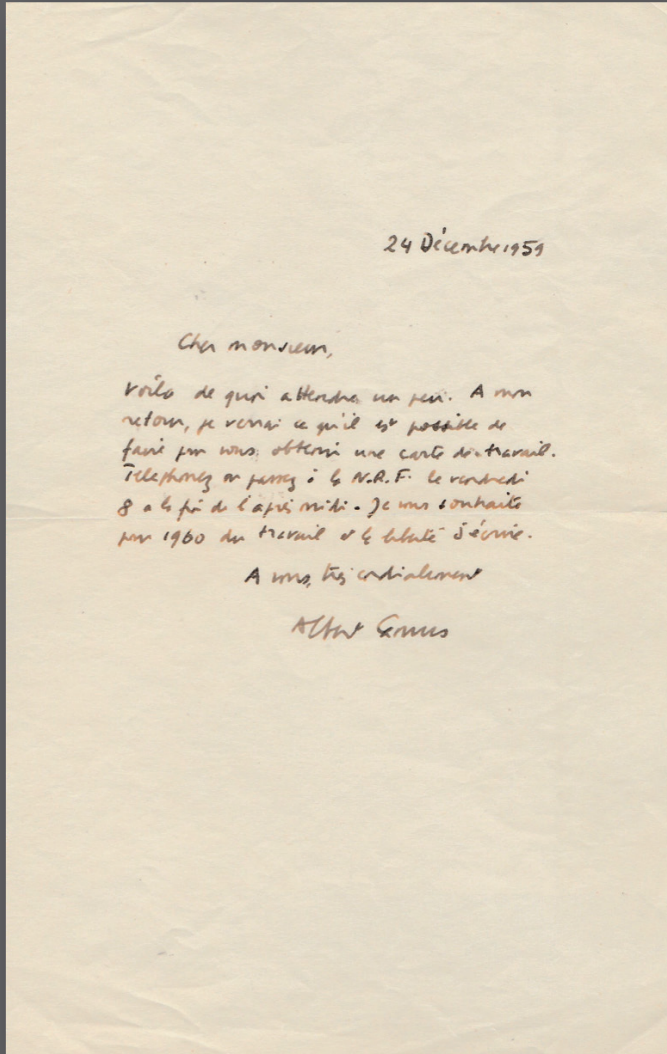 24 Décembre 1959
Cher monsieur,
Voilà de quoi attendre un peu. A mon
retour, je verrai ce qu'il est possible de
faire pour vous obtenir une carte de travail.
Téléphonez ou passez à la N.R.F. le vendredi
8 a la fin de l'après midi. Je vous souhaite
pour 1960 du travail et la liberté d'écrire.
A vous, très cordialement
Albert Camus